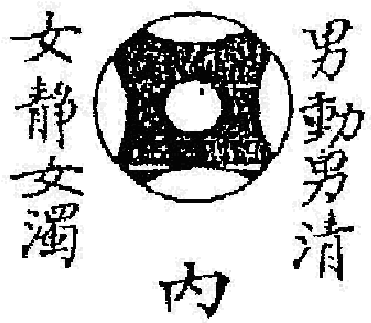 男動男清
女靜女濁
内